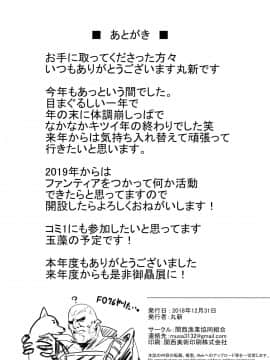 ■ あとがき ■
お手に取ってくださった方々
いつもありがとうございます丸新です
今年もあっという間でした。
目まぐるしい一年で
年の末に体調崩しっぱで
なかなかキツイ年の終わりでした笑
来年からは気持ち入れ替えて頑張って
行きたいと思います。
2019年からは
ファンティアをつかって何か活動
できたらと思ってますので
開設したらよろしくおねがいします！
コミ1にも参加したいと思ってます
玉藻の予定です！
本年度もありがとうございました
来年度からも是非御贔屓に！
発行日：2018年12月31日
発行者：丸新
サークル：関西漁業協同組合
印刷：関西美術印刷株式会社